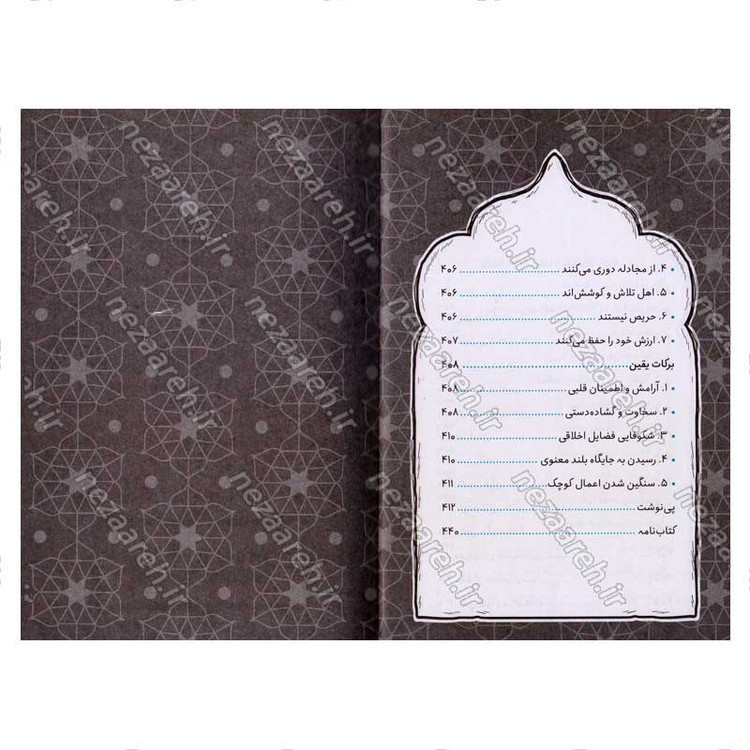 • ۴. از مجادله دوری می‌کنند ........ ۴۰۶
• ۵. اهل تلاش و کوشش‌اند ........ ۴۰۶
• ۶. حریص نیستند ........ ۴۰۶
• ۷. ارزش خود را حفظ می‌کنند ........ ۴۰۷
برکات یقین ........ ۴۰۸
• ۱. آرامش و اطمینان قلبی ........ ۴۰۸
• ۲. سخاوت و گشاده‌دستی ........ ۴۰۸
• ۳. شکوفایی فضایل اخلاقی ........ ۴۱۰
• ۴. رسیدن به جایگاه بلند معنوی ........ ۴۱۰
• ۵. سنگین شدن اعمال کوچک ........ ۴۱۱
پی‌نوشت ........ ۴۱۲
کتاب‌نامه ........ ۴۴۰
nezaareh.ir